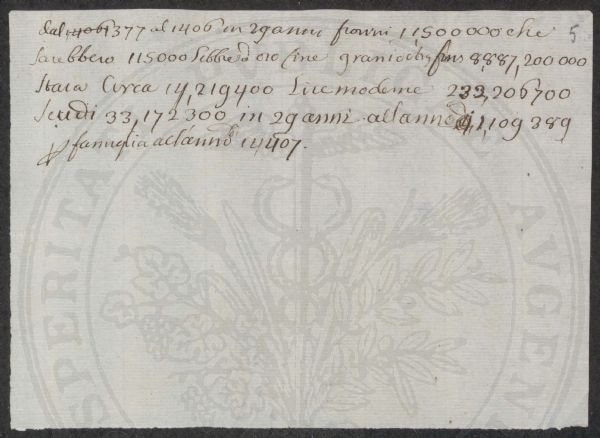 dal 1377 al 1406 in 29 anni fiorini 11500000 che
sarebbero 115000 Libbre d'oro fine grani 8887,200 000
Staia Circa 14,219400 Lire moderne 233,206700
Scudi 33,172300 in 29 anni all'anno 1,109389
p famiglia all'anno 14407.
5
PROSPERITATI AVGEND